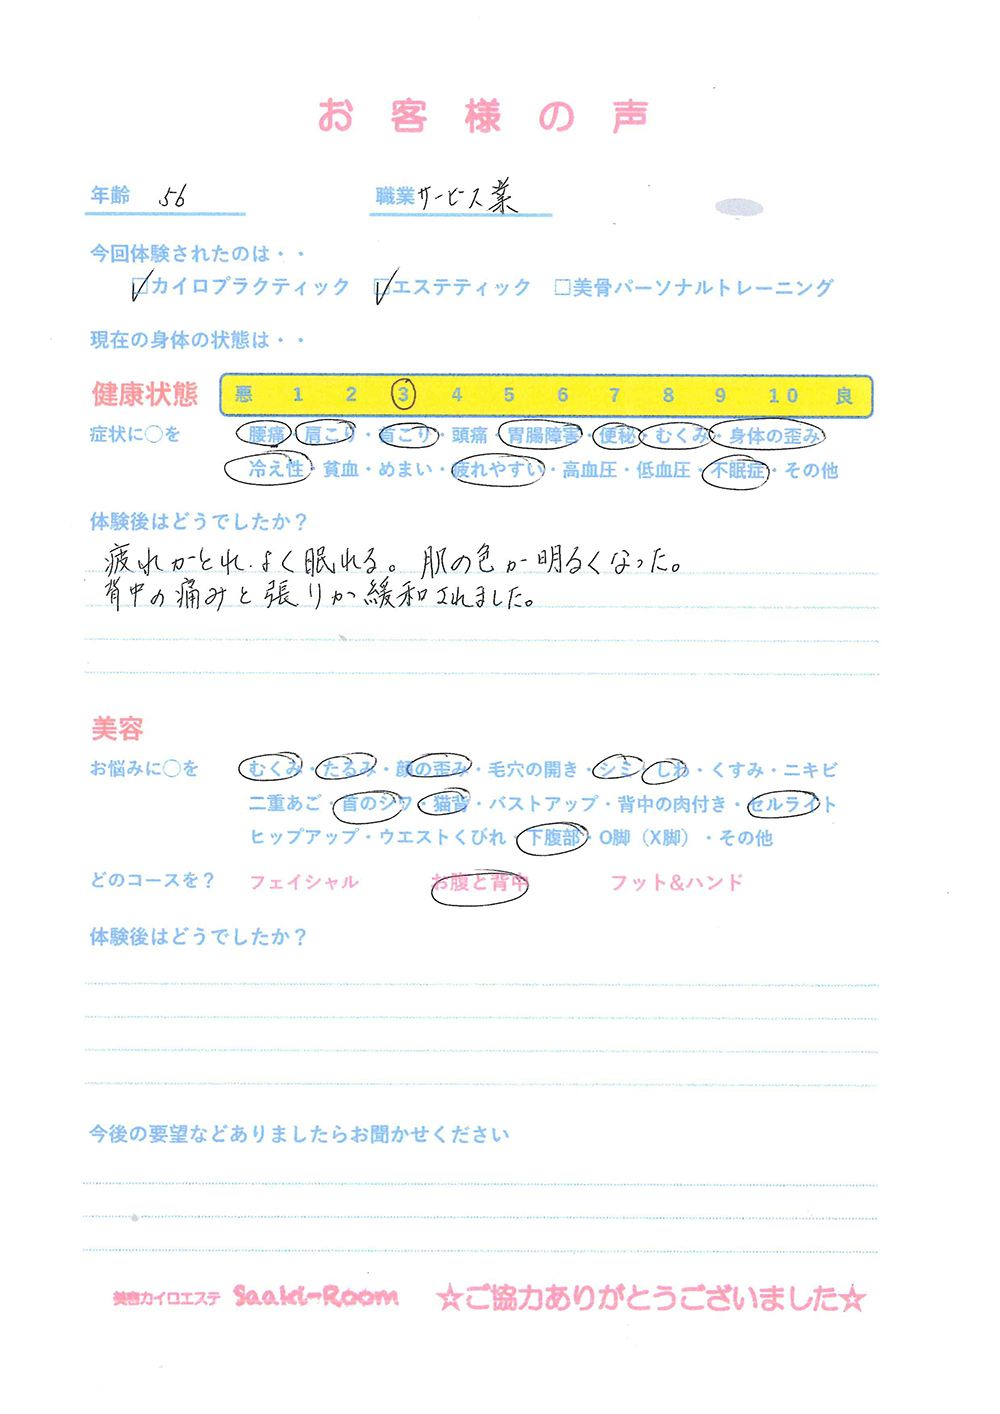 お客様の声
年齢 56 職業 サービス業
今回体験されたのは・・
☑カイロプラクティック ☑エステティック □美骨パーソナルトレーニング
現在の身体の状態は・・
健康状態 悪 1 2 3 4 5 6 7 8 9 10 良
症状に○を 腰痛・肩こり・首こり・頭痛・胃腸障害・便秘・むくみ・身体の歪み
冷え性・貧血・めまい・疲れやすい・高血圧・低血圧・不眠症・その他
体験後はどうでしたか？
疲れがとれ、よく眠れる。肌の色が明るくなった。
背中の痛みと張りが緩和されました。
美容
お悩みに○を むくみ・たるみ・顔の歪み・毛穴の開き・シミ・しわ・くすみ・ニキビ
二重あご・首のシワ・猫背・バストアップ・背中の肉付き・セルライト
ヒップアップ・ウエストくびれ・下腹部・O脚（X脚）・その他
どのコースを？ フェイシャル お腹と背中 フット&ハンド
体験後はどうでしたか？
今後の要望などありましたらお聞かせください
美容カイロエステ Saaki-Room ☆ご協力ありがとうございました☆